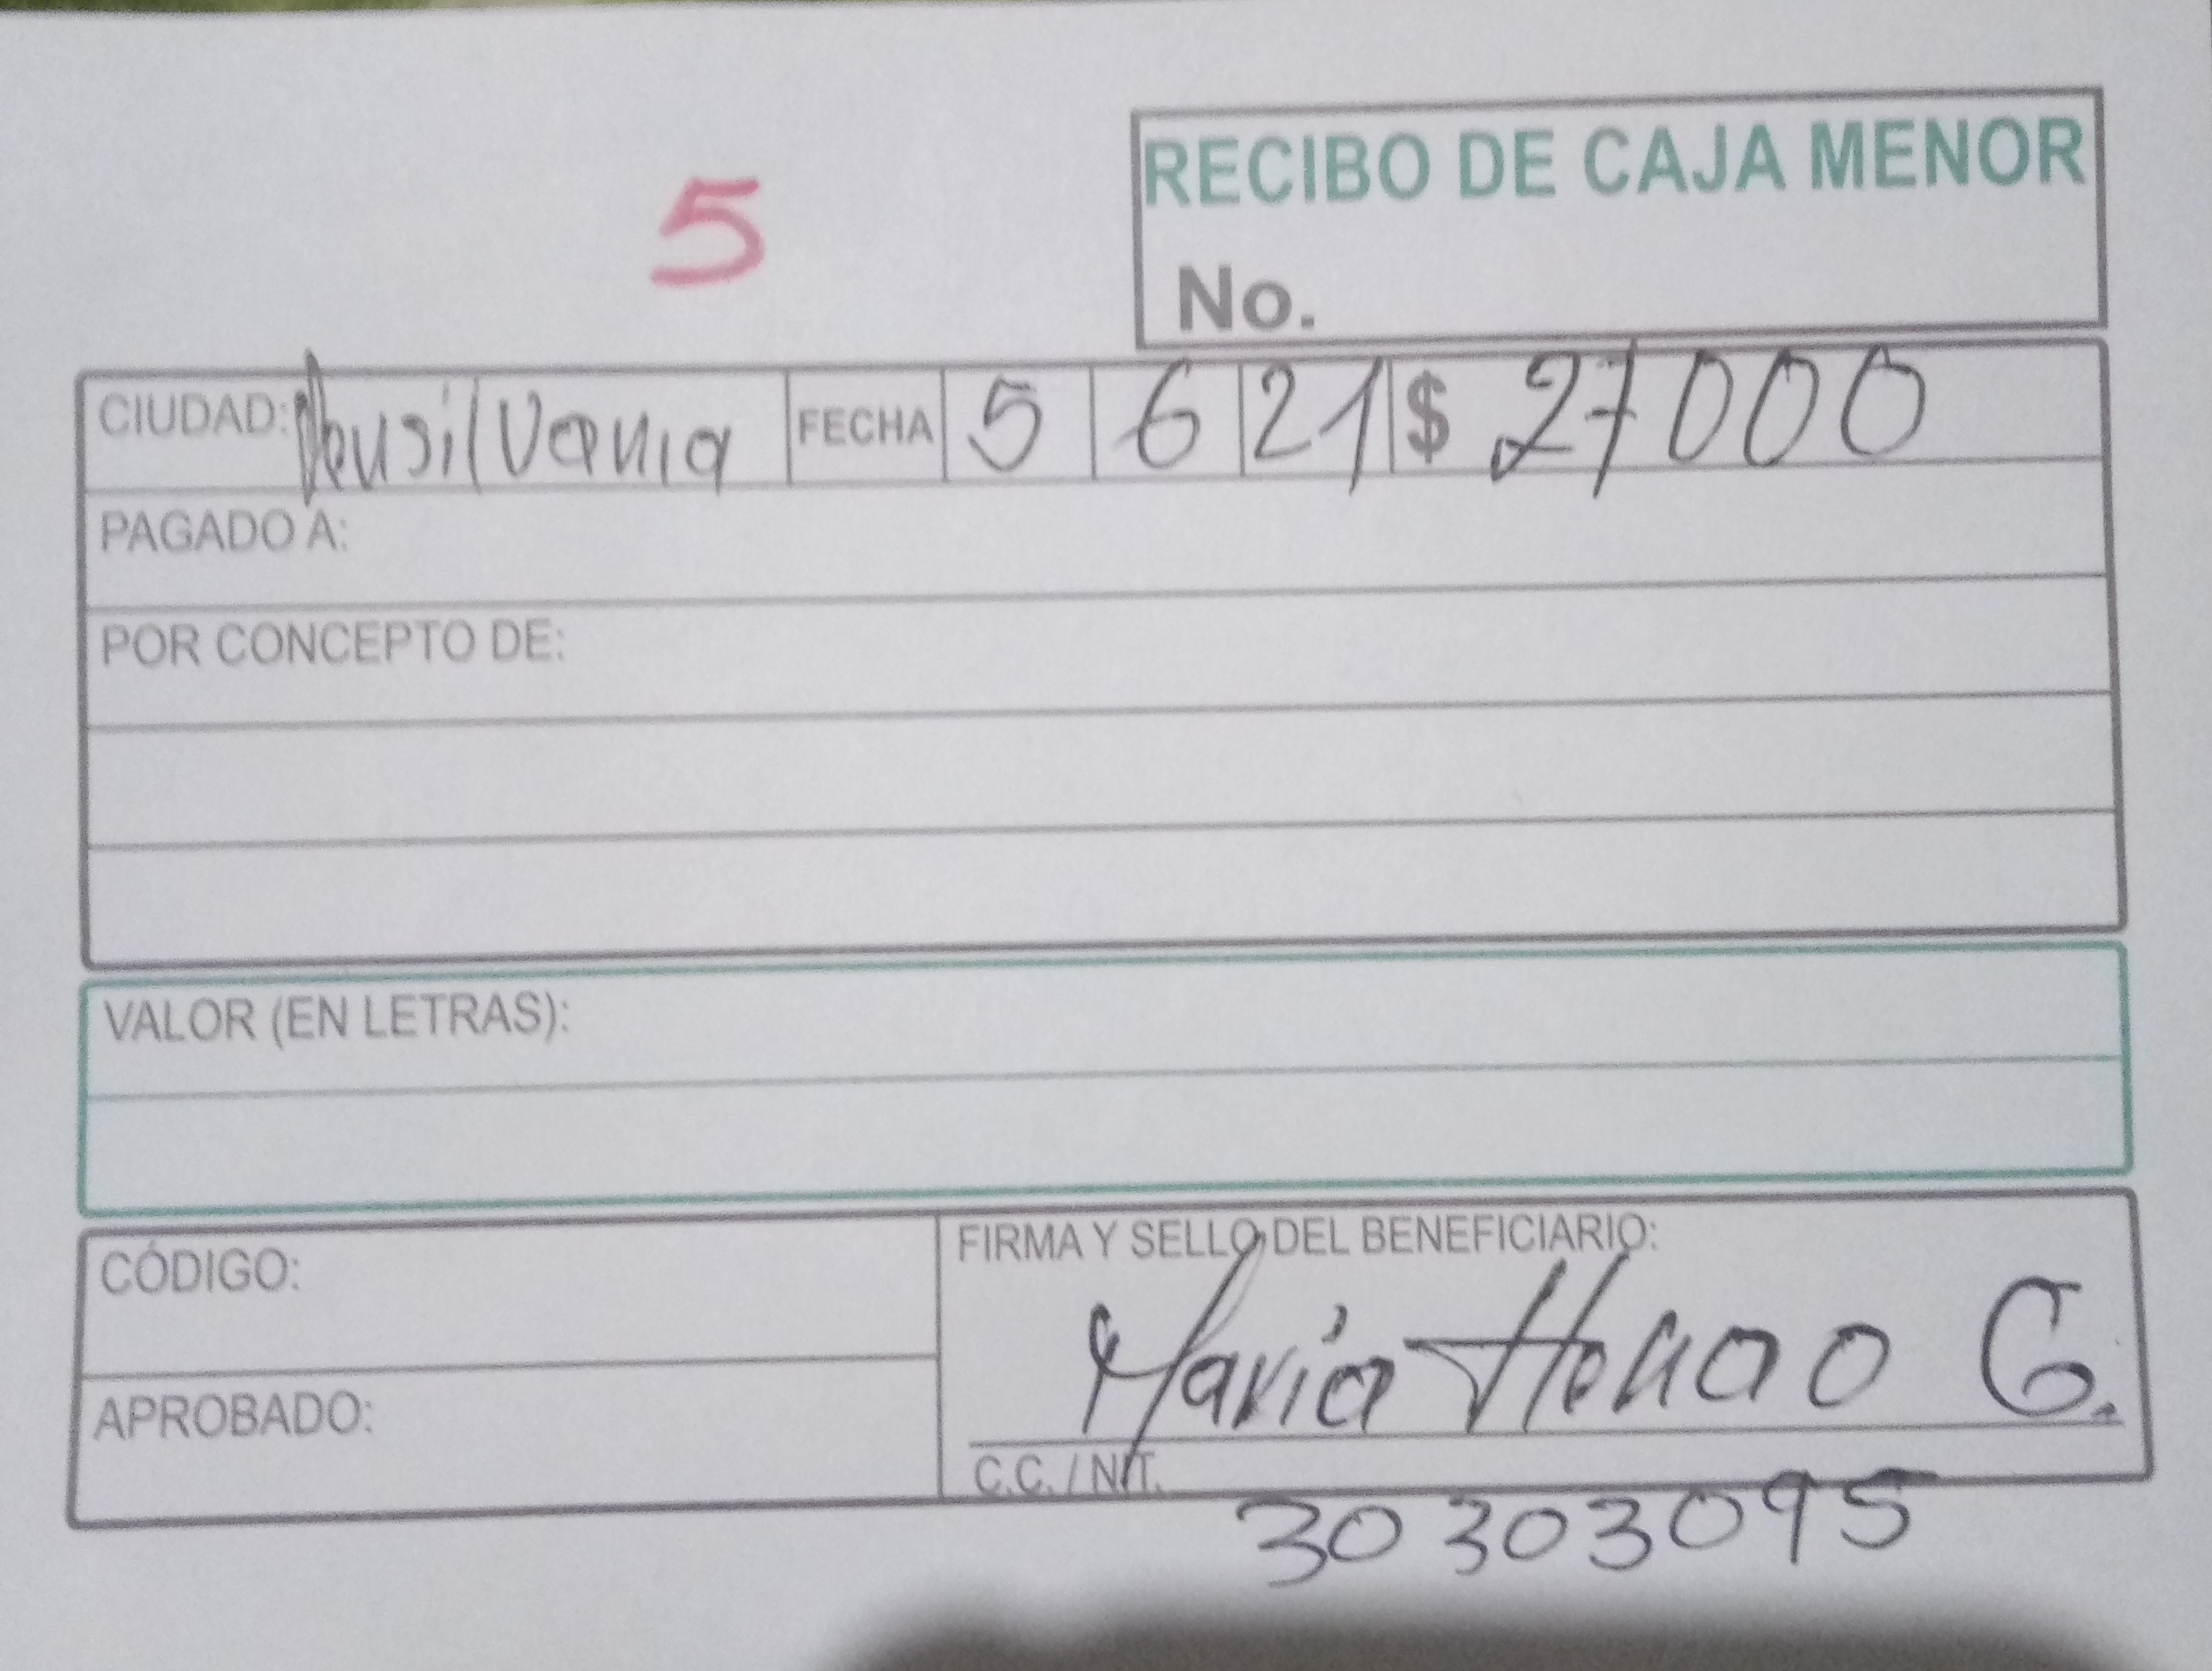 5
RECIBO DE CAJA MENOR
No.
CIUDAD: Pensilvania FECHA 5 6 21 $ 27000
PAGADO A:
POR CONCEPTO DE:
VALOR (EN LETRAS):
CÓDIGO:
FIRMA Y SELLO DEL BENEFICIARIO:
Maria Henao G.
APROBADO:
C.C. / NIT.
30303095